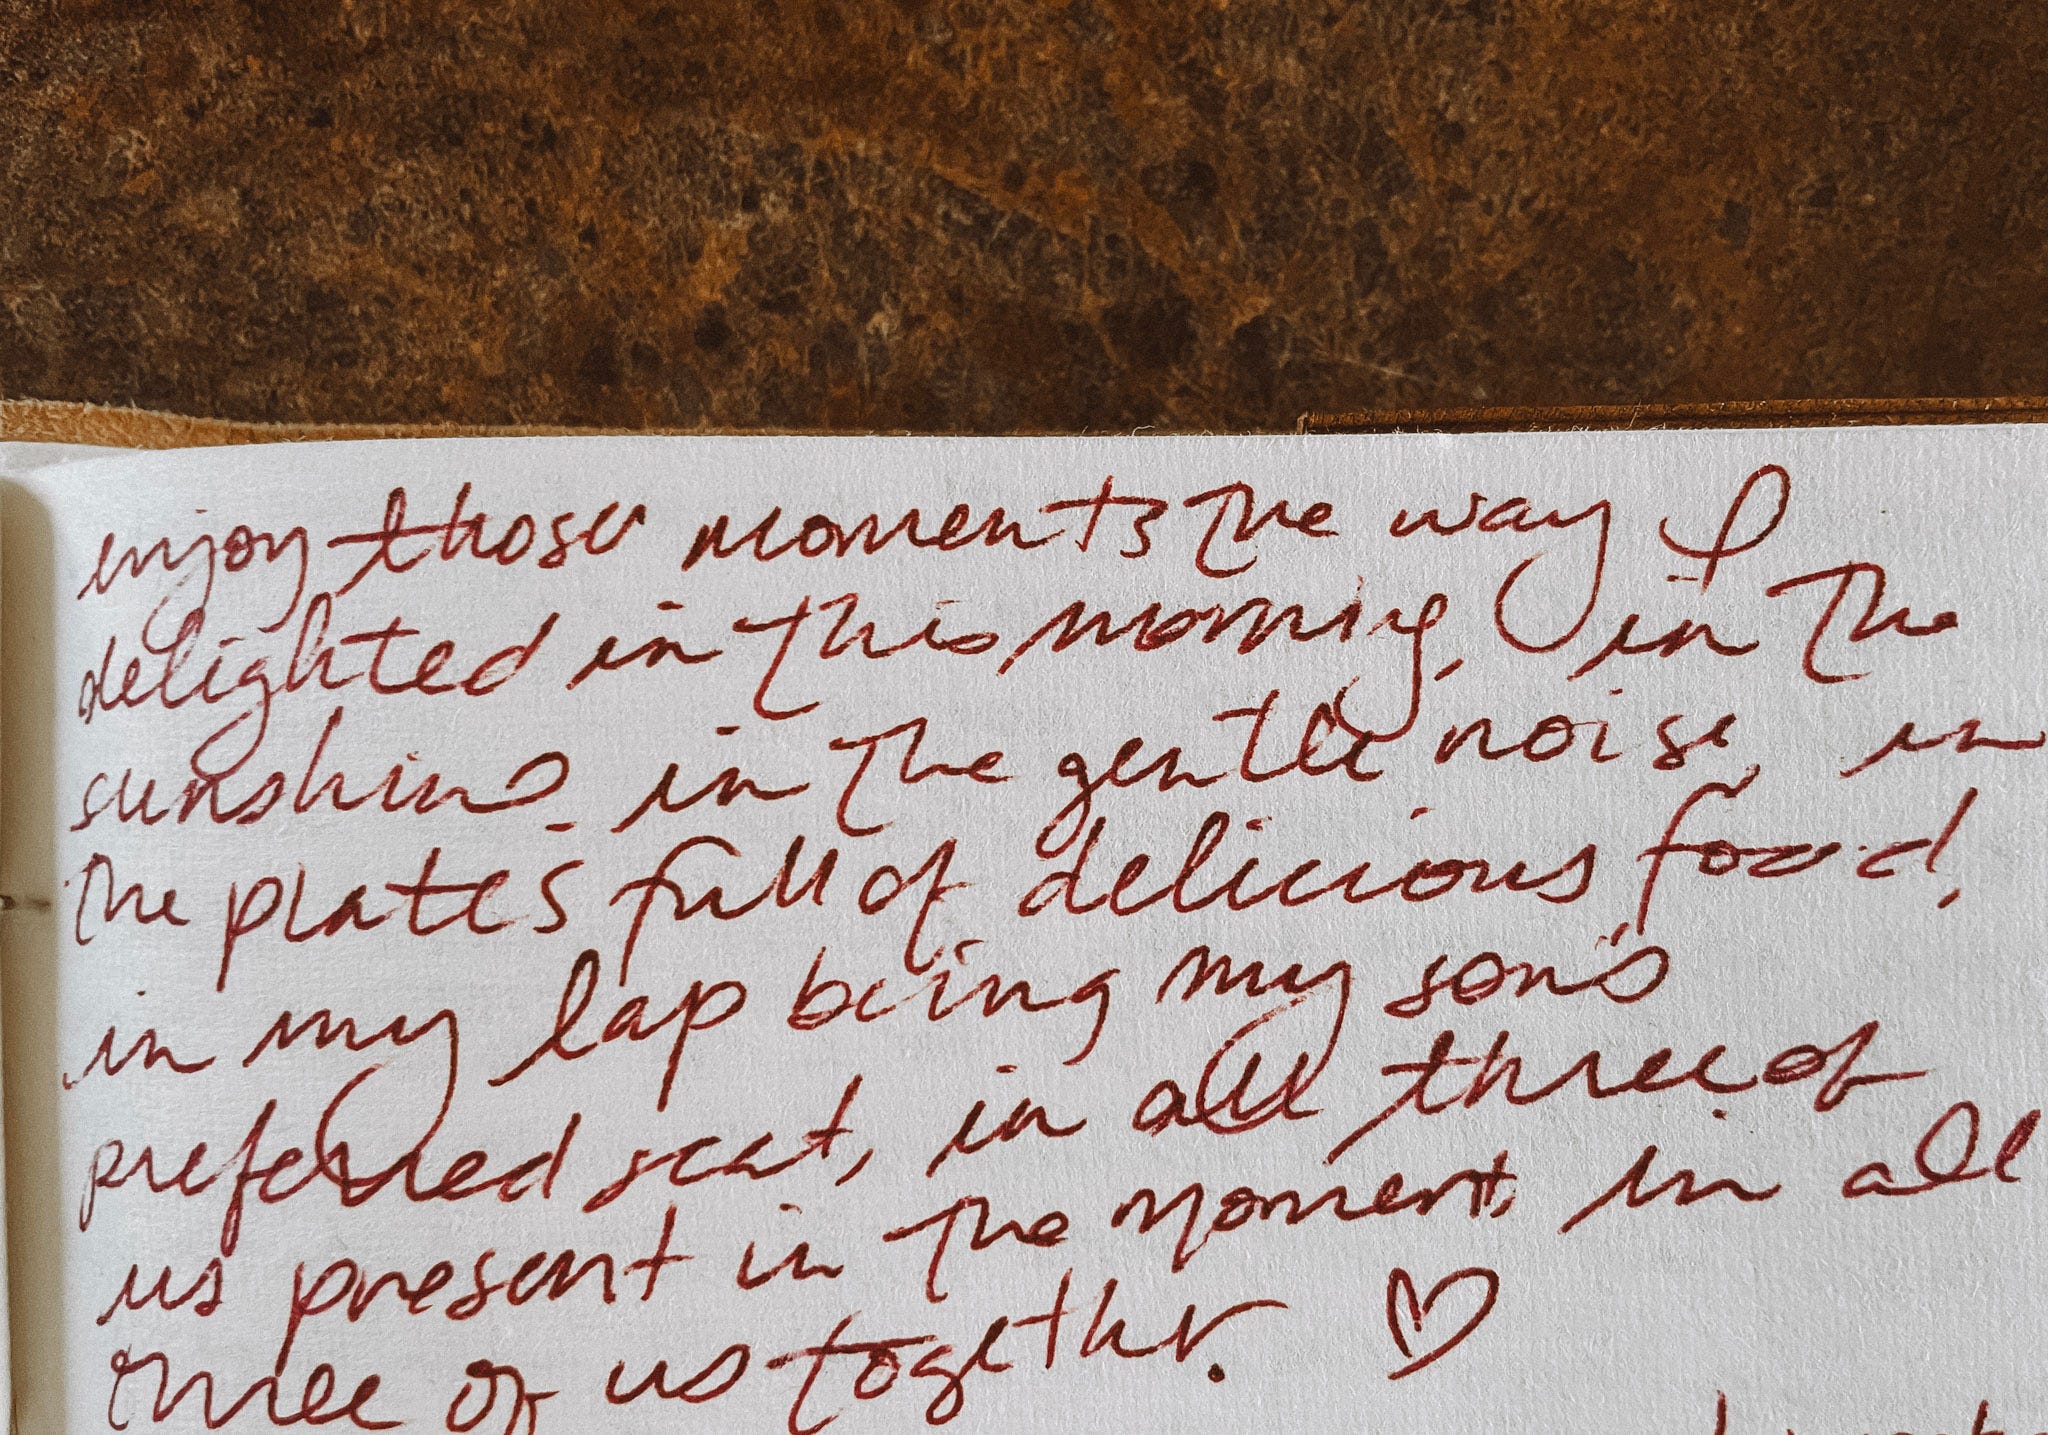 enjoy those moments the way I
delighted in this morning, in the
sunshine, in the gentle noise, in
the plates full of delicious food,
in my lap being my son's
preferred seat, in all three of
us present in the moment, in all
three of us together. ♡